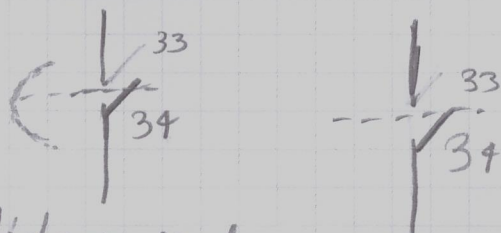 33
34
33
34